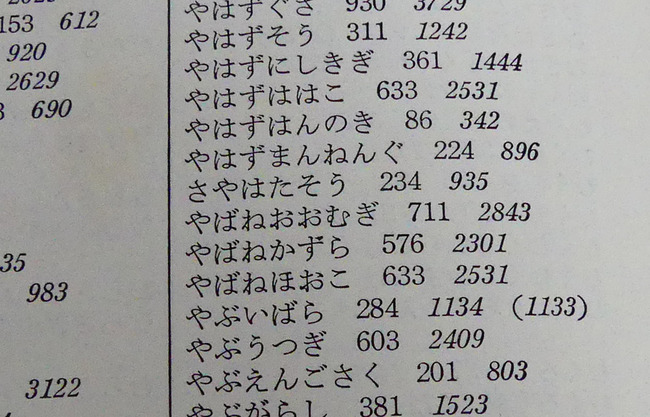 153 612
920
2629
690
35
983
3122
やはずぐさ 930 3729
やはずそう 311 1242
やはずにしきぎ 361 1444
やはずははこ 633 2531
やはずはんのき 86 342
やはずまんねんぐ 224 896
さやはたそう 234 935
やばねおおむぎ 711 2843
やばねかずら 576 2301
やばねほおこ 633 2531
やぶいばら 284 1134 (1133)
やぶうつぎ 603 2409
やぶえんごさく 201 803
やぶがらし 381 1523